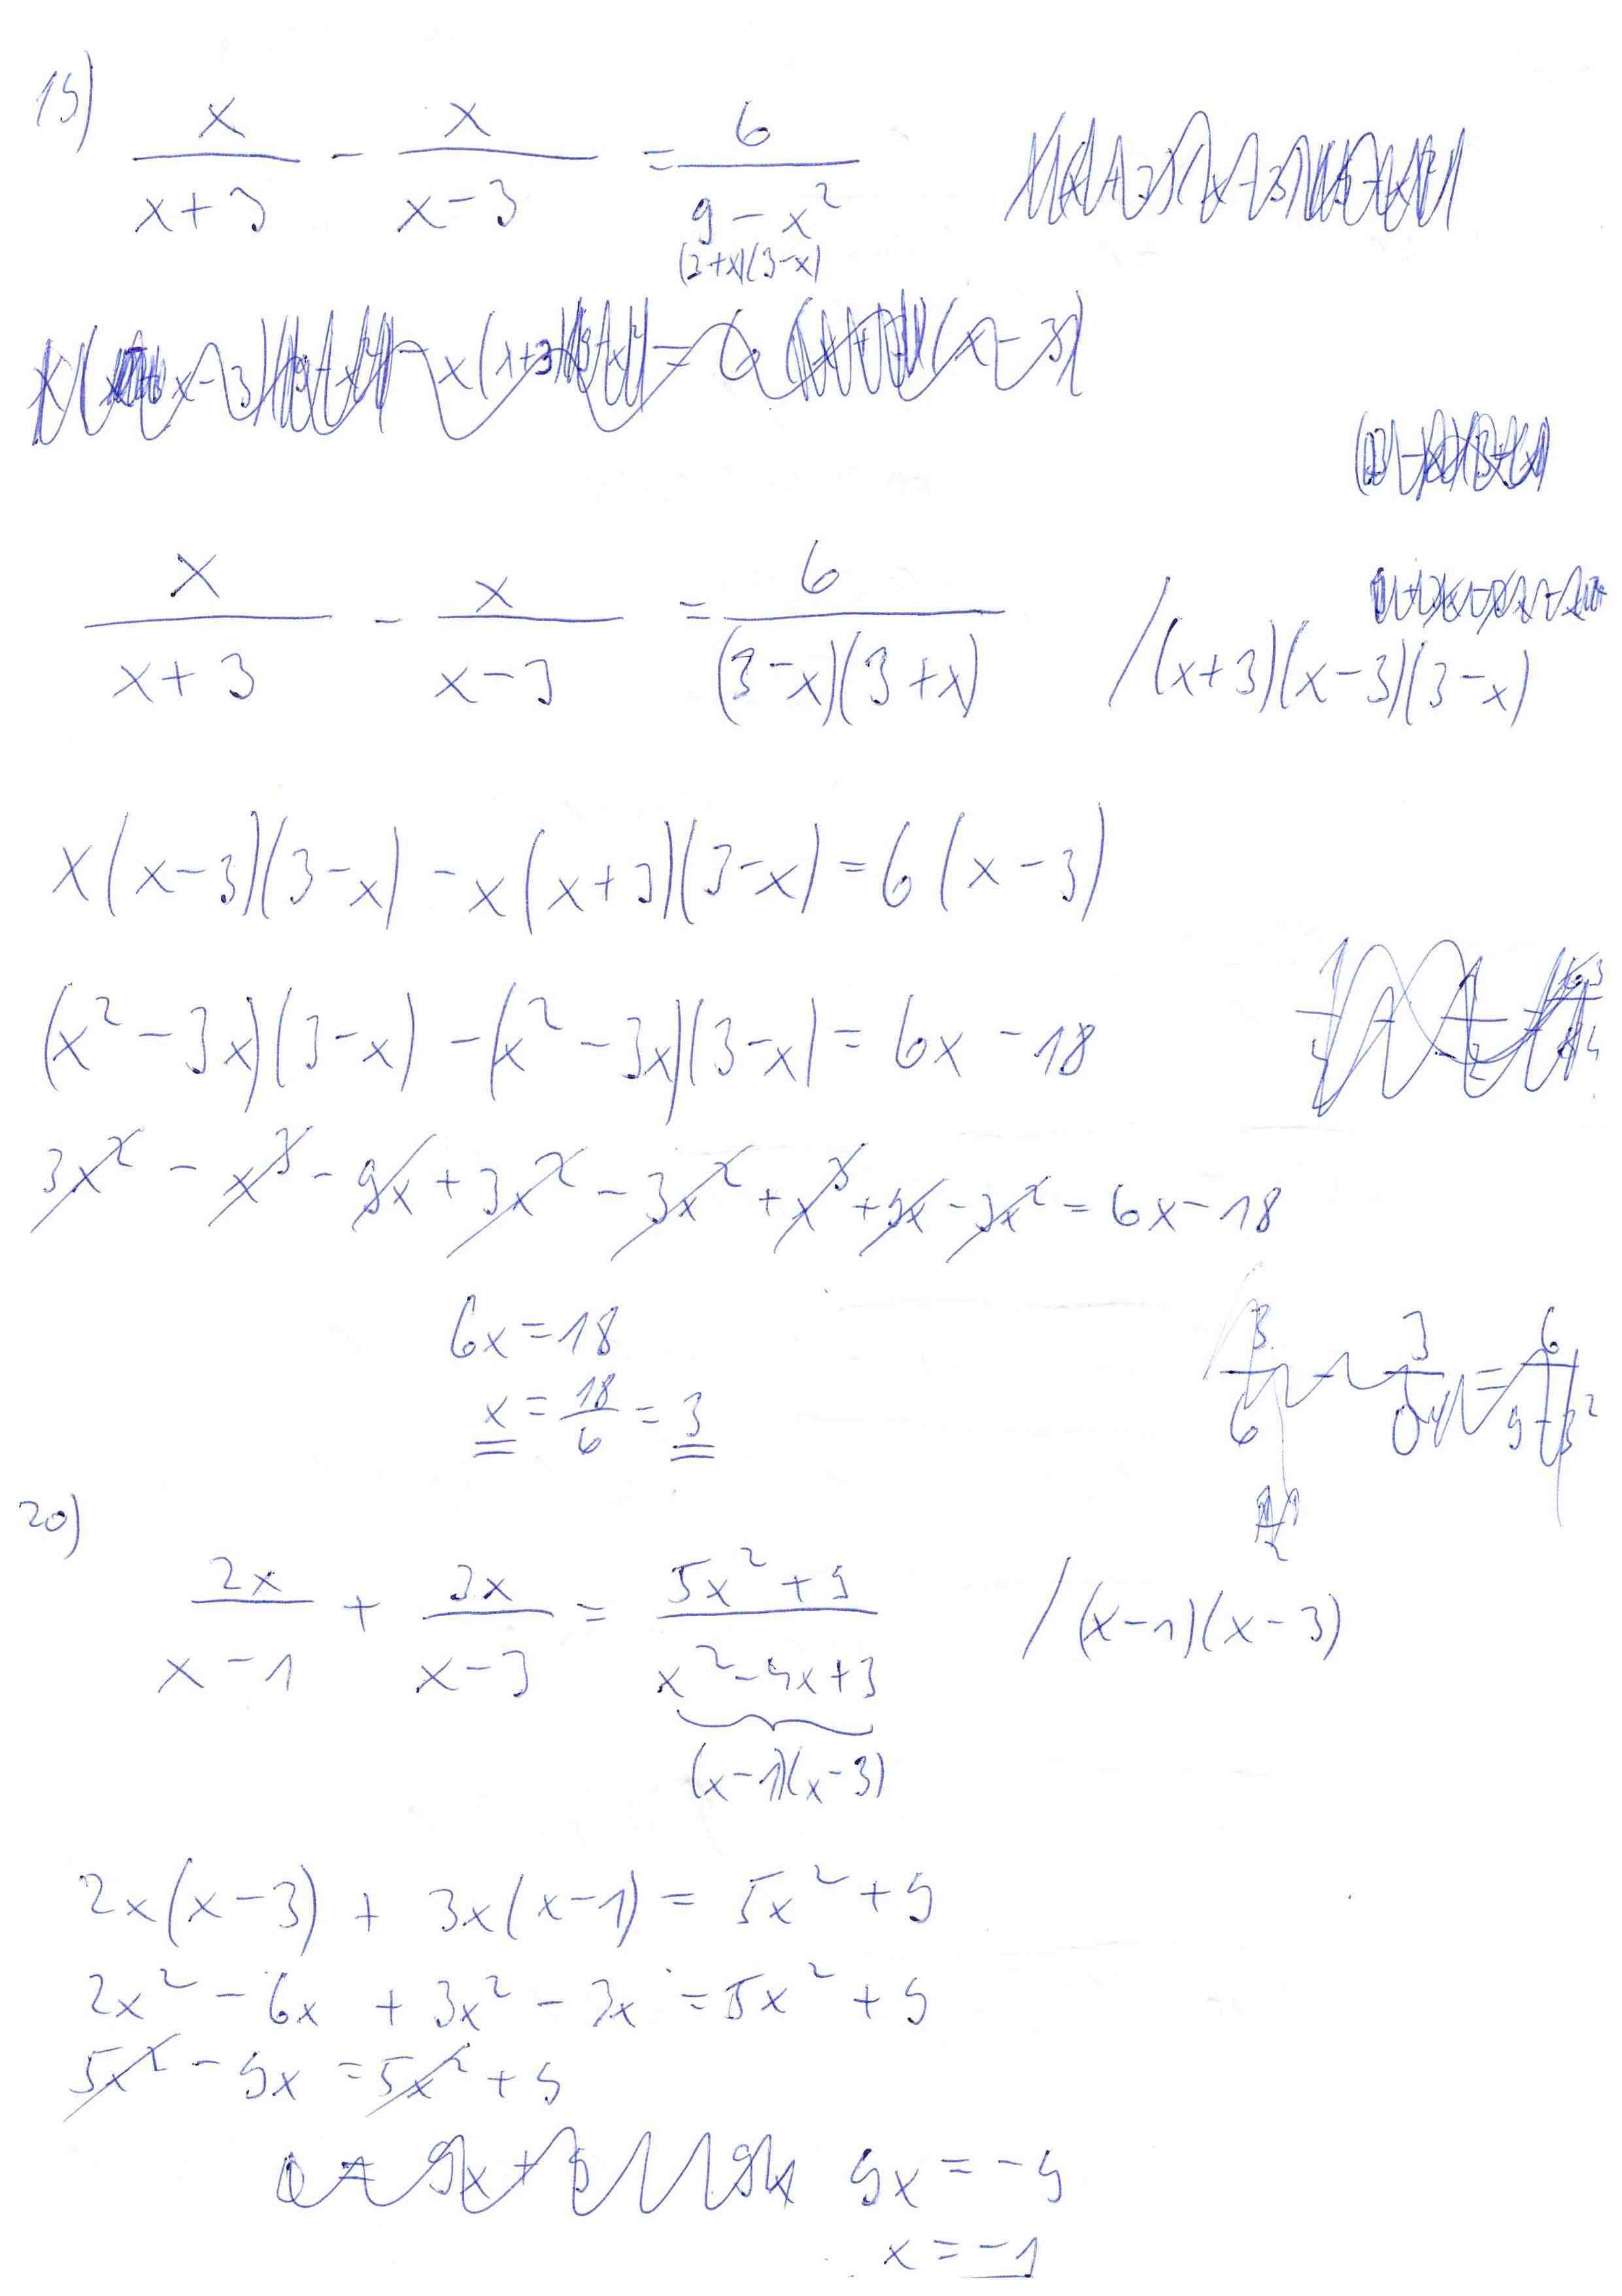 19) x/(x+3) - x/(x-3) = 6/(9-x²)
(3+x)(3-x)
x/(x+3) - x/(x-3) = 6/((3-x)(3+x)) /(x+3)(x-3)(3-x)
x(x-3)(3-x) - x(x+3)(3-x) = 6(x-3)
(x²-3x)(3-x) - (x²-3x)(3-x) = 6x-18
3x² - x³ - 9x + 3x² - 3x² + x³ + 9x - 3x² = 6x-18
6x = 18
x = 18/6 = 3
20)
2x/(x-1) + 3x/(x-3) = (5x²+9)/(x²-4x+3) /(x-1)(x-3)
(x-1)(x-3)
2x(x-3) + 3x(x-1) = 5x²+9
2x² - 6x + 3x² - 3x = 5x² + 9
5x² - 9x = 5x² + 9
9x = -9
x = -1